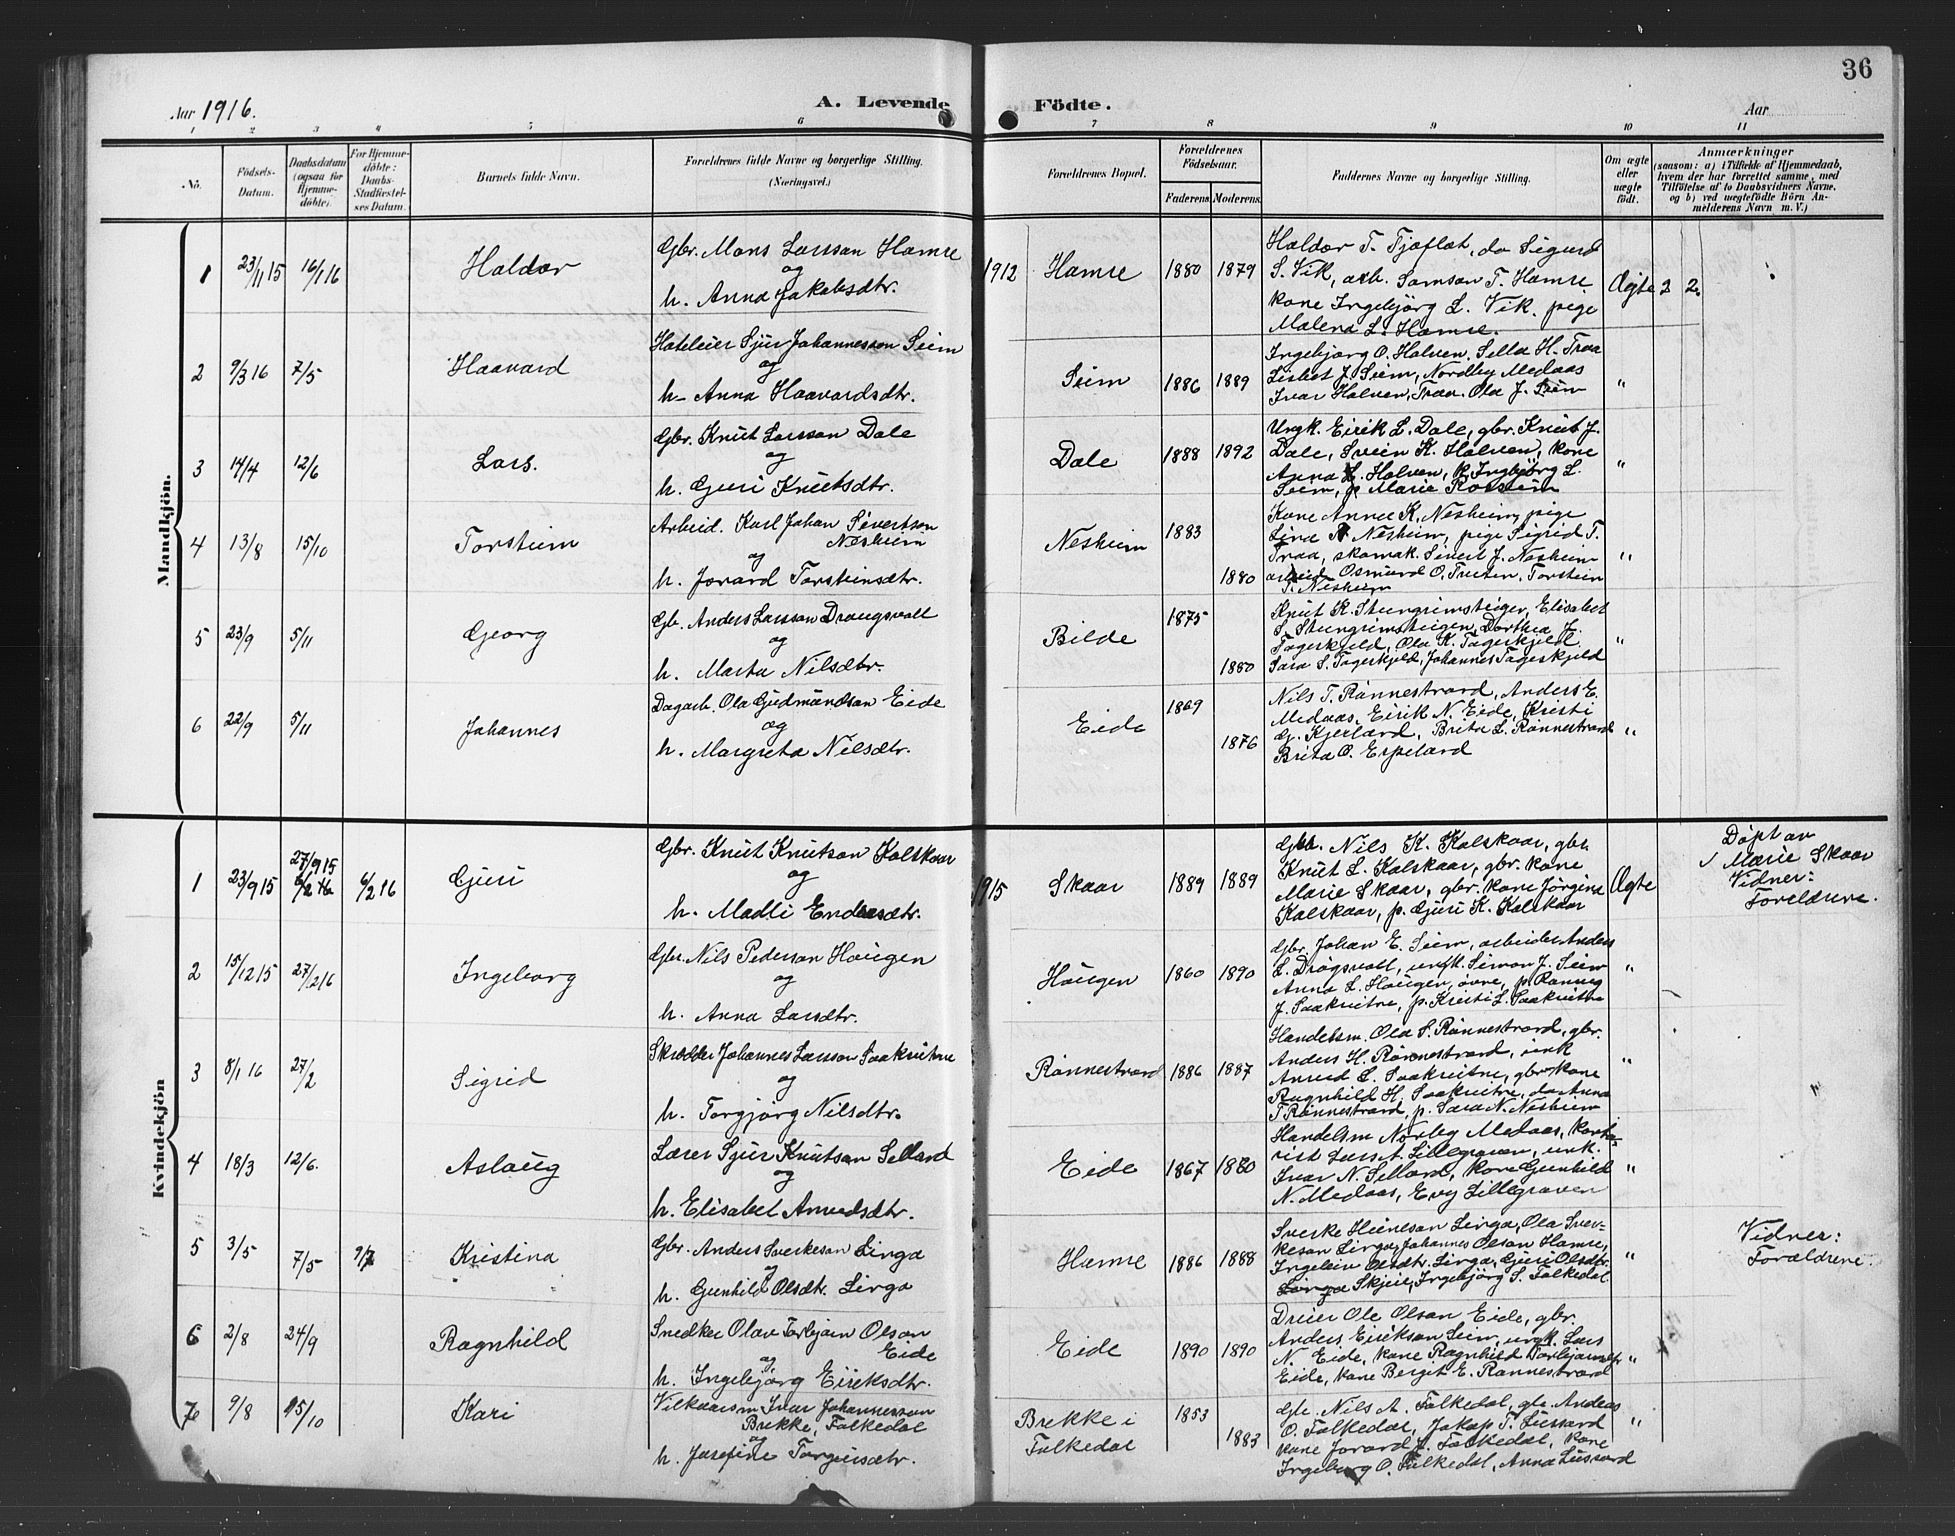 36
Aar 1916.
A. Levende Födte.
Aar
1 2 3 4 5 6 7 8 9 10 11
No.
Födsels-
Datum.
Daabsdatum
(ogsaa for
Hjemme-
döbte).
For Hjemme-
döbte:
Daabs-
Stadfæstel-
ses Datum.
Barnets fulde Navn.
Forældrenes fulde Navne og borgerlige Stilling.
(Næringsvei.)
Forældrenes Bopæl.
Forældrenes
Födselsaar.
Faderens. Moderens.
Faddernes Navne og borgerlige Stilling.
Om ægte
eller
uægte
födt.
Anmærkninger
(saasom: a) i Tilfælde af Hjemmedaab,
hvem der har forrettet samme, med
Tilföielse af to Daabsvidners Navne,
og b) ved uægtefödte Börn An-
melderens Navn m. V.)
Mandkjön.
1 23/11 15 16/1 16 Haldor
Gbr. Mons Larsson Hamre
og
h. Anna Jakobsdtr.
1912 Hamre 1880 1879
Haldor T. Tjoflot, do Sigurd
S. Vik, arb. Samson T. Hamre
kone Ingebjörg L. Vik, pige
Malena L. Hamre.
Ægte 2 2.
2 9/3 16 7/5 Haavard
Hoteleier Sjur Johannesson Seim
og
h. Anna Haavardsdtr.
Seim 1886 1889
Ingebjorg O. Holven, Sella H. Traa
Lisbet J. Seim, Nordby Medaas
Ivar Holven, Traa. Ola J. Seim
"
3 14/4 12/6 Lars.
Gbr. Knut Larsson Dale
og
h. Guri Knutsdtr.
Dale 1888 1892
Ungk. Eirik L. Dale, gbr. Knut J.
Dale, Svein K. Holven, kone
Anna L. Holven, k. Ingbjørg L.
Seim, p Marie Rosseim
"
4 13/8 15/10 Torsteim
Arbeid. Karl Johan Sivertson
Nesheim
og
h. Jorand Torsteinsdtr.
Nesheim 1883 1880
Kone Anna K. Nesheim, pige
Lina Nesheim, pige Sigrid T.
Traa, skomak. Sivert J. Nesheim
arbeid Osmund O. Tveten, Torstein
T. Nesheim
"
5 23/9 5/11 Georg
Gb. Anders Larsson Draugsvoll
og
h. Marta Nilsdtr.
Bilde 1875 1880
Knut K. Steingrimsteigen, Elisabet
S. Steingrimsteigen, Dorthea J.
Fagerskjeld, Ola K. Fagerskjeld.
Sara S. Fagerskjeld, Johannes Fagerskjeld
"
6 22/9 5/11 Johannes
Dagarb. Ola Gudmundson Eide
og
h. Margreta Nilsdtr.
Eide 1869 1876
Nils T. Rønnestrand, Anders E.
Medaas, Eirik N. Eide, Kristi
G. Kjerland, Brita L. Rønnestrand
Brita O. Espeland
"
Kvindekjön
1 23/9 15 27/9 15 6/2 16 6/2 16 Guri
Gbr. Knut Knutson Kolskaar
og
h. Madli Endresdtr.
1915 Skaar 1889 1889
Gbr. Nils K. Kolskaar, gbr.
Knut L. Kolskaar, gbr. kone
Marie Skaar, gbr. kone Jørgina
Kolskaar, p. Guri K. Kolskaar
Ægte
Døpt av
Marie Skaar
Vidner:
Foreldrene.
2 15/12 15 27/2 16 Ingeborg
Gbr. Nils Pederson Haugen
og
h. Anna Larsdtr.
Haugen 1860 1890
Gbr. Johan E. Seim, arbeider Anders
L. Drøgsvoll, ungk. Simon J. Seim
Anna L. Haugen, øvre, p. Rannug
J. Saakvitne, p. Kristi L. Saakvitne
"
3 8/1 16 27/2 Sigrid
Skrædder Johannes Larsson Saakvitne
og
h. Torgjörg Nilsdtr.
Rønnestrand 1886 1887
Handelsm. Ola S. Rønnestrand, gbr.
Anders H. Rønnestrand, unk
Anved L. Saakvitne, gbr. kone
Ragnhild H. Saakvitne, do Anna
T Rønnestrand, p. Sara N. Nesheim
"
4 18/3 12/6. Aslaug
Lærer Sjur Knutson Selland
og
h. Elisabet Anvedsdtr.
Eide 1867 1880
Handelsm Norby Medaas, konto-
rist Lars A. Lillegraven, unk.
Ivar N. Selland, kone Gunhild
N. Medaas, Evy Lillegraven
"
5 3/5 7/5 9/7 Kristina
Gbr. Anders Sverkeson Linga
og
h. Gunhild Olsdtr. Linga
Hamre 1886 1888
Sverke Heineson Linga, Ola Sver-
keson Linga, Johannes Olson Hamre,
Ingelein Olsdtr. Linga, Guri Olsdtr.
Linga Skjeie, Ingebjörg S. Folkedal
"
Vidner:
Forældrene.
6 2/8 24/9 Ragnhild
Snedker Olav Torbjörn Olson
Eide
og
h. Ingebjørg Eiriksdtr.
Eide 1890 1890
Dreier Ole Olson Eide, gbr.
Anders Eirikson Seim, ungk. Lars
N. Eide, kone Ragnhild Torbjørnsdtr
Eide, kone Bergit E. Rønnestrand
"
7 9/8 15/10 Kari
Vilkaarsm Ivar Johannesson
Brekke, Folkedal
og
h. Josefine Torgeirsdtr.
Brekke i
Folkedal 1853 1883
Gbr. Nils A. Folkedal, gbr. Andeas
O. Folkedal, Jakop T. Lussand
kone Jorand J. Folkedal, kone
Ingeborg O. Folkedal, Anna Lussand
"